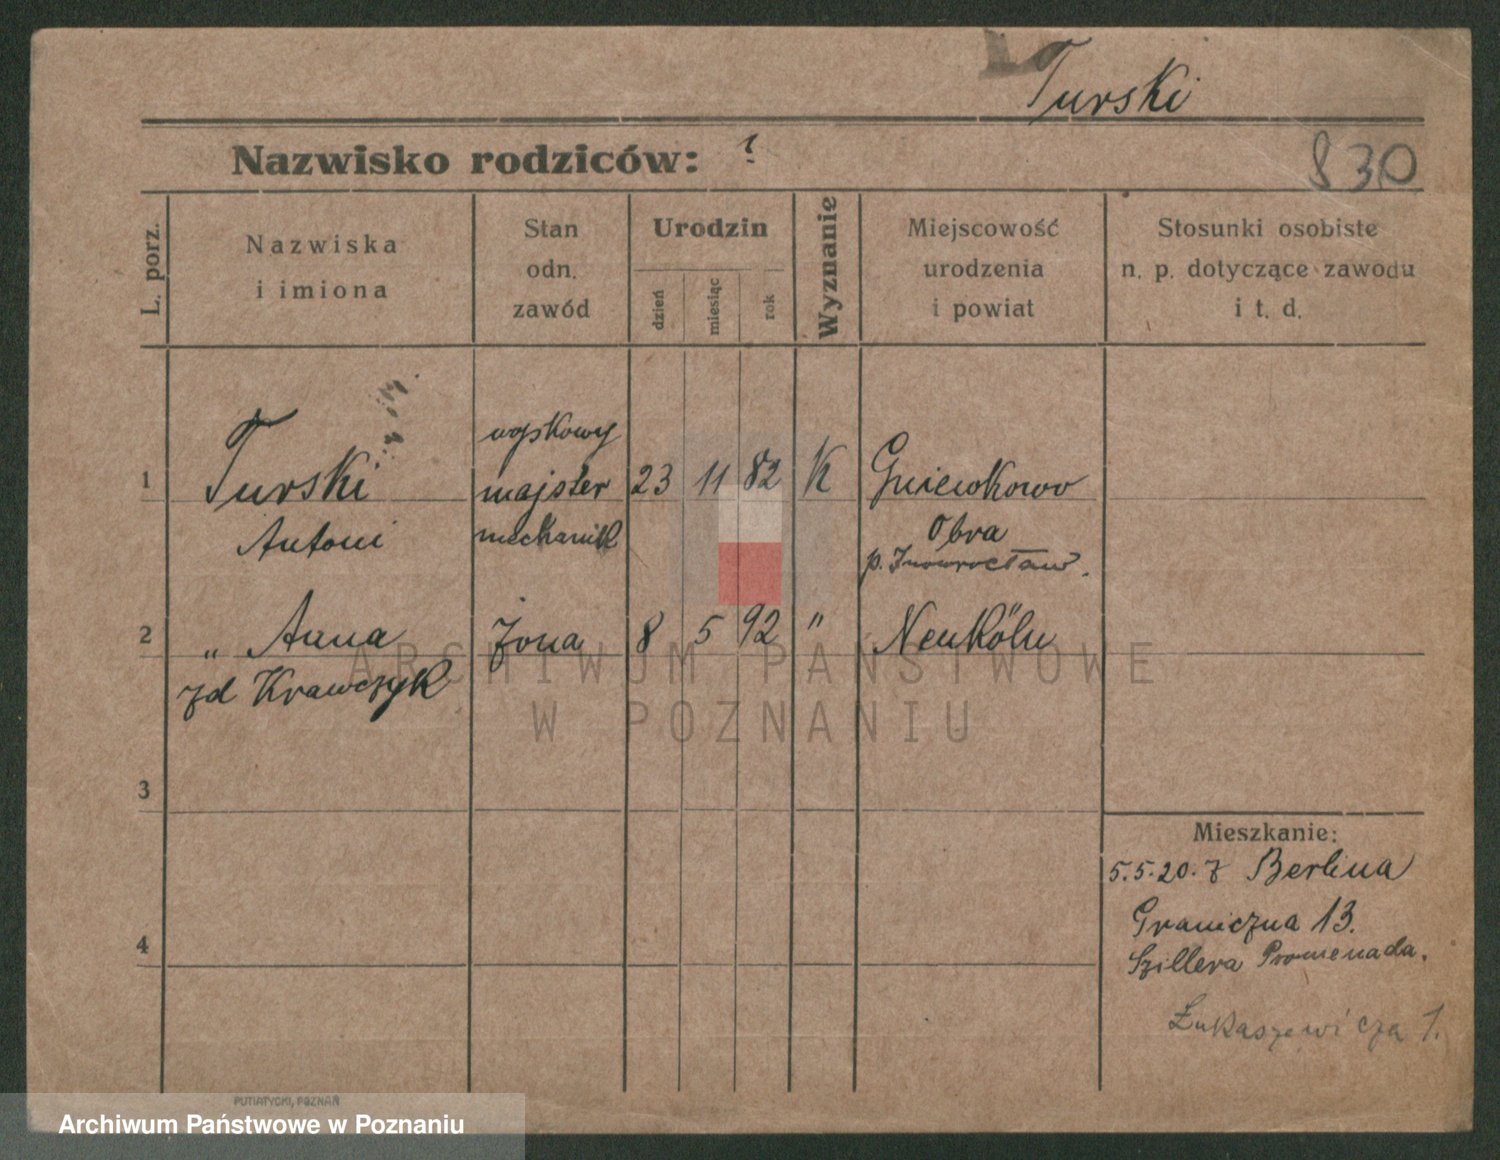 Turski
Nazwisko rodziców: ?
830
L. porz.
Nazwiska
i imiona
Stan
odn.
zawód
Urodzin
dzień
miesiąc
rok
Wyznanie
Miejscowość
urodzenia
i powiat
Stosunki osobiste
n. p. dotyczące zawodu
i t. d.
wojskowy
1 Turski majster 23 11 82 K Gniewkowo
Antoni mechanik Obra
p. Inowrocław.
2 " Anna żona 8 5 92 " Neuköln
zd Krawczyk
ARCHIWUM PAŃSTWOWE
W POZNANIU
3
Mieszkanie:
5.5.20. z Berlina
Graniczna 13.
4
Szillera Promenada.
Łukaszewicza 1.
PUTIATYCKI, POZNAŃ
Archiwum Państwowe w Poznaniu